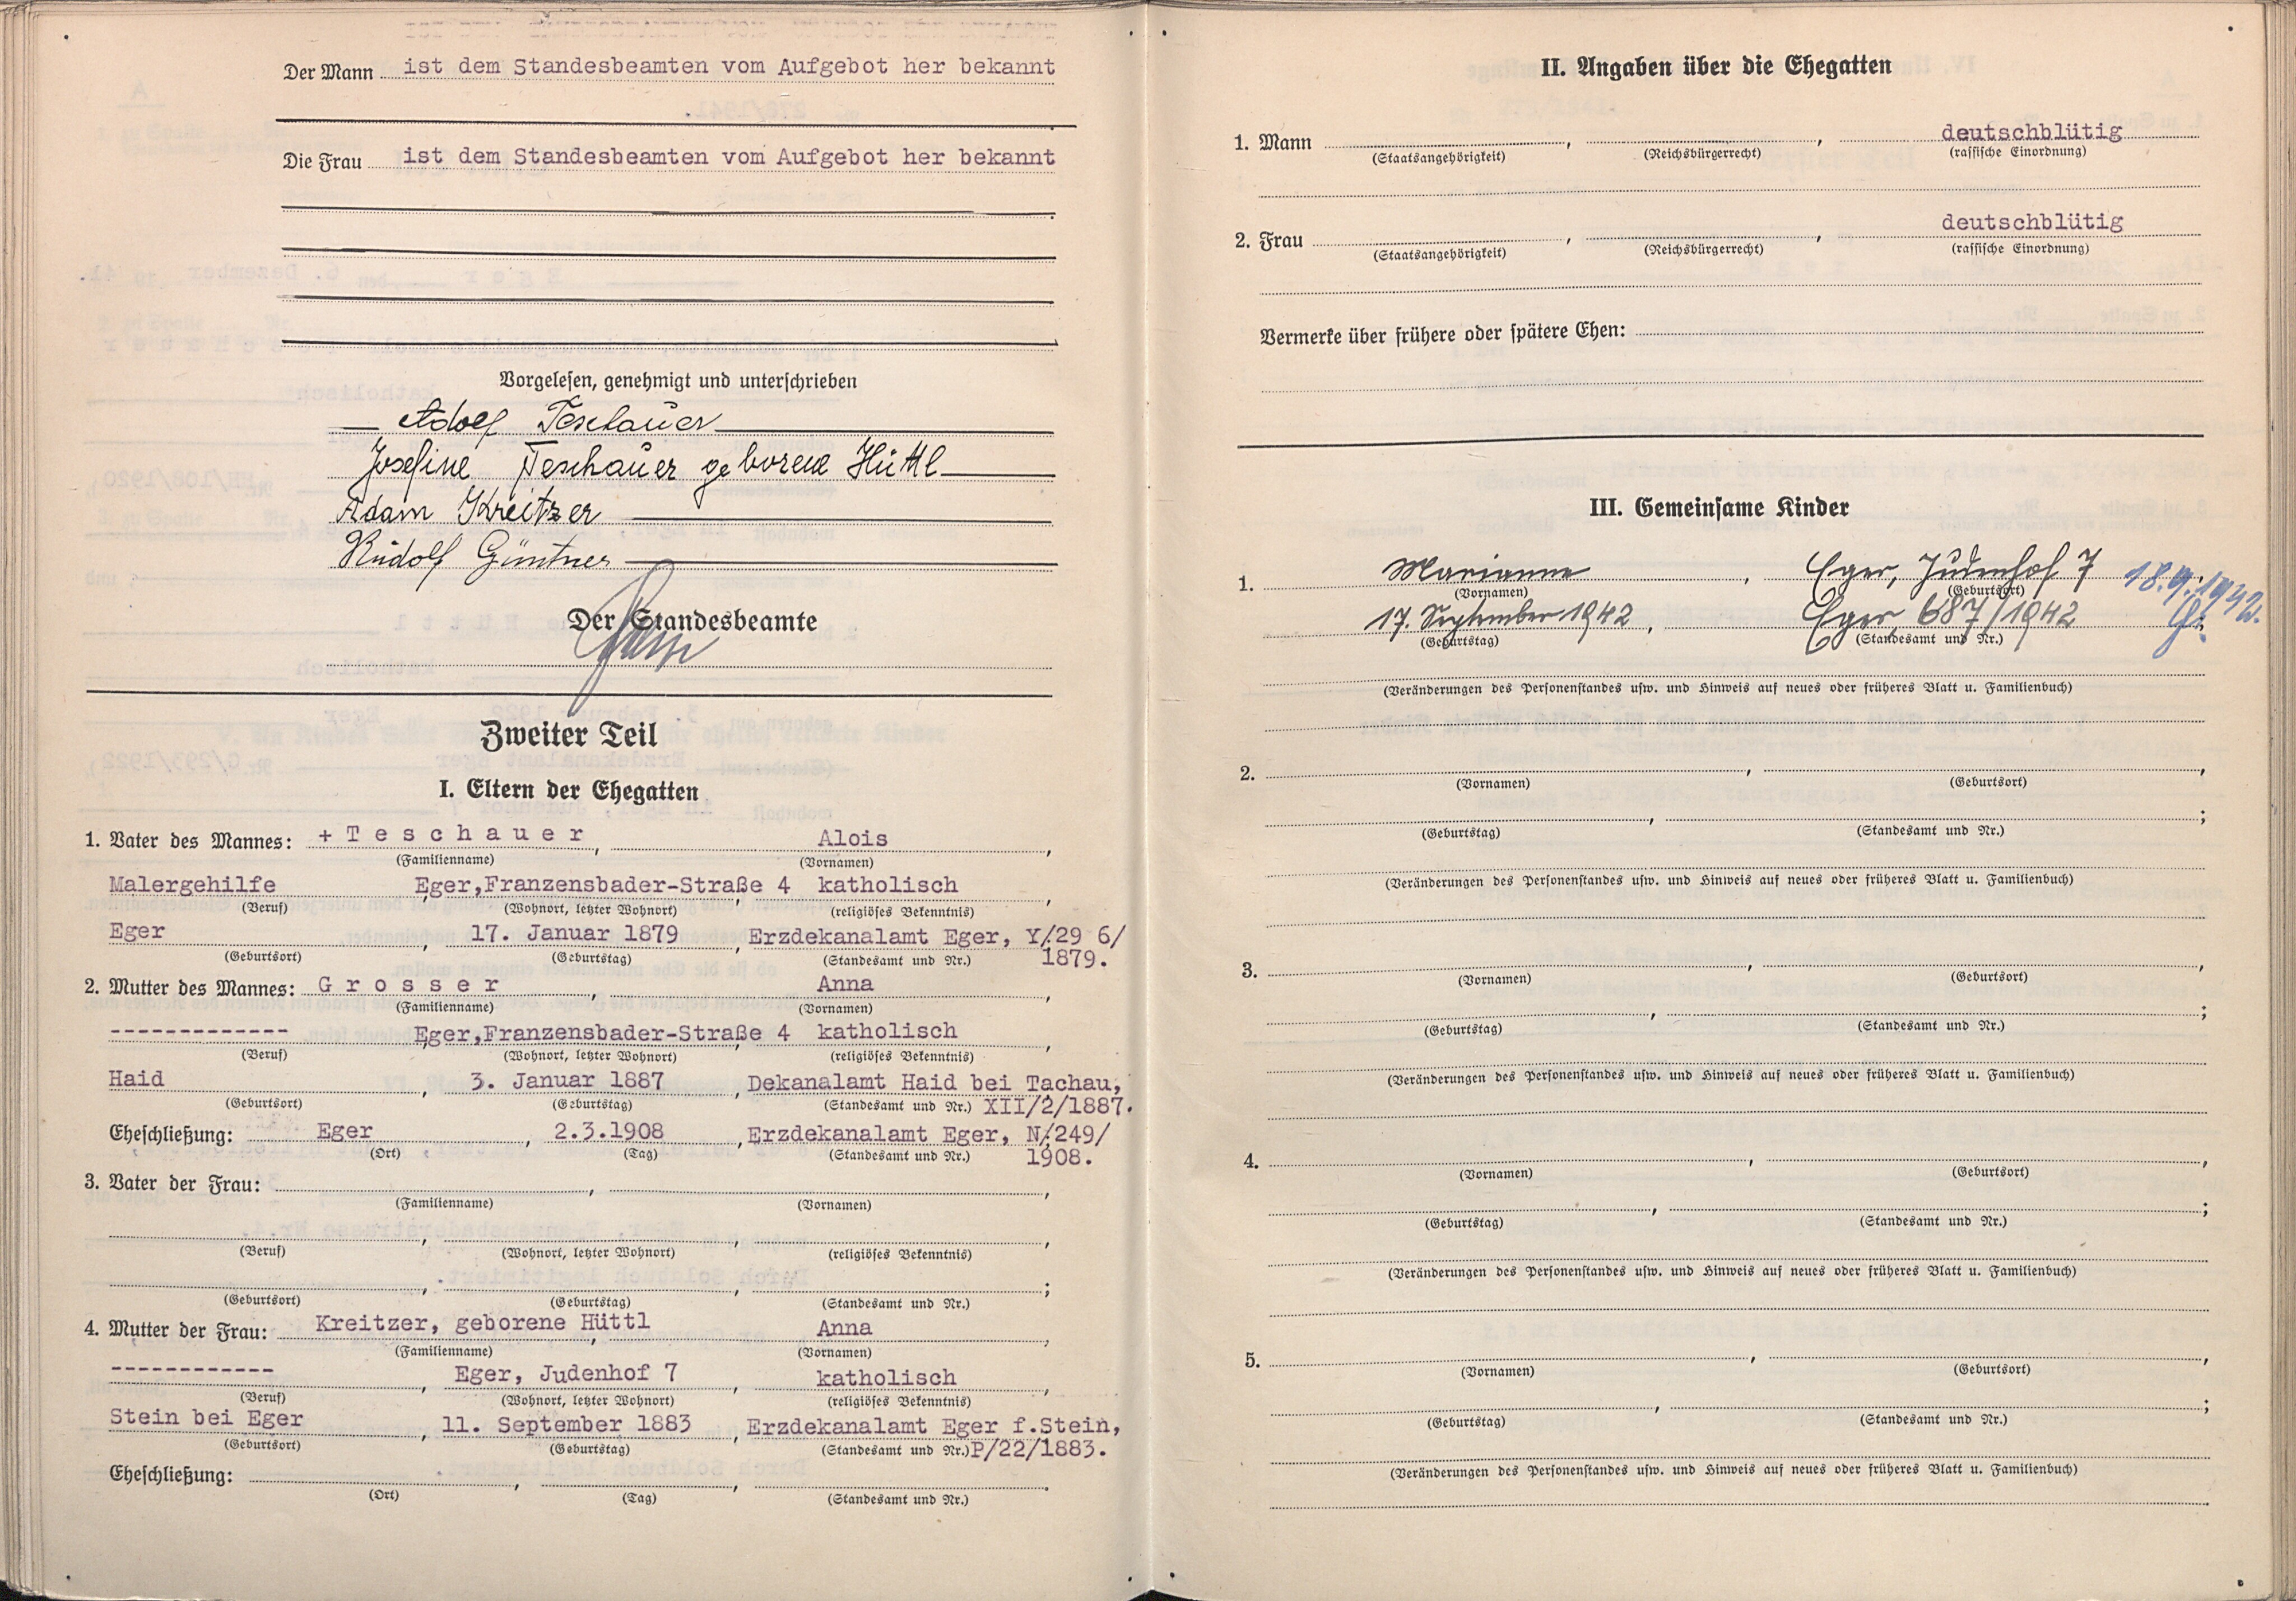 Der Mann ist dem Standesbeamten vom Aufgebot her bekannt
Die Frau ist dem Standesbeamten vom Aufgebot her bekannt
Vorgelesen, genehmigt und unterschrieben
Adolf Teschauer
Josefine Teschauer geborene Hüttl
Adam Kreitzer
Rudolf Güntner
Der Standesbeamte
Zweiter Teil
I. Eltern der Ehegatten
1. Vater des Mannes: + Teschauer, Alois,
(Familienname) (Vornamen)
Malergehilfe, Eger,Franzensbader-Straße 4, katholisch,
(Beruf) (Wohnort, letzter Wohnort) (religiöses Bekenntnis)
Eger, 17. Januar 1879, Erzdekanalamt Eger, Y/29 6/
(Geburtsort) (Geburtstag) (Standesamt und Nr.) 1879.
2. Mutter des Mannes: Grosser, Anna,
(Familienname) (Vornamen)
-------------, Eger,Franzensbader-Straße 4, katholisch,
(Beruf) (Wohnort, letzter Wohnort) (religiöses Bekenntnis)
Haid, 3. Januar 1887, Dekanalamt Haid bei Tachau,
(Geburtsort) (Geburtstag) (Standesamt und Nr.) XII/2/1887.
Eheschließung: Eger, 2.3.1908, Erzdekanalamt Eger, N/249/
(Ort) (Tag) (Standesamt und Nr.) 1908.
3. Vater der Frau: , ,
(Familienname) (Vornamen)
, , ,
(Beruf) (Wohnort, letzter Wohnort) (religiöses Bekenntnis)
, , ;
(Geburtsort) (Geburtstag) (Standesamt und Nr.)
4. Mutter der Frau: Kreitzer, geborene Hüttl, Anna,
(Familienname) (Vornamen)
------------, Eger, Judenhof 7, katholisch,
(Beruf) (Wohnort, letzter Wohnort) (religiöses Bekenntnis)
Stein bei Eger, 11. September 1883, Erzdekanalamt Eger f.Stein,
(Geburtsort) (Geburtstag) (Standesamt und Nr.) P/22/1883.
Eheschließung: , , .
(Ort) (Tag) (Standesamt und Nr.)
II. Angaben über die Ehegatten
1. Mann , , deutschblütig
(Staatsangehörigkeit) (Reichsbürgerrecht) (rassische Einordnung)
2. Frau , , deutschblütig
(Staatsangehörigkeit) (Reichsbürgerrecht) (rassische Einordnung)
Vermerke über frühere oder spätere Ehen:
III. Gemeinsame Kinder
1. Marianne, Eger, Judenhof 7, 18.9.1942.
(Vornamen) (Geburtsort)
17. September 1942, Eger 687/1942
(Geburtstag) (Standesamt und Nr.)
(Veränderungen des Personenstandes usw. und Hinweis auf neues oder früheres Blatt u. Familienbuch)
2. , ,
(Vornamen) (Geburtsort)
, ;
(Geburtstag) (Standesamt und Nr.)
(Veränderungen des Personenstandes usw. und Hinweis auf neues oder früheres Blatt u. Familienbuch)
3. , ,
(Vornamen) (Geburtsort)
, ;
(Geburtstag) (Standesamt und Nr.)
(Veränderungen des Personenstandes usw. und Hinweis auf neues oder früheres Blatt u. Familienbuch)
4. , ,
(Vornamen) (Geburtsort)
, ;
(Geburtstag) (Standesamt und Nr.)
(Veränderungen des Personenstandes usw. und Hinweis auf neues oder früheres Blatt u. Familienbuch)
5. , ,
(Vornamen) (Geburtsort)
, ;
(Geburtstag) (Standesamt und Nr.)
(Veränderungen des Personenstandes usw. und Hinweis auf neues oder früheres Blatt u. Familienbuch)